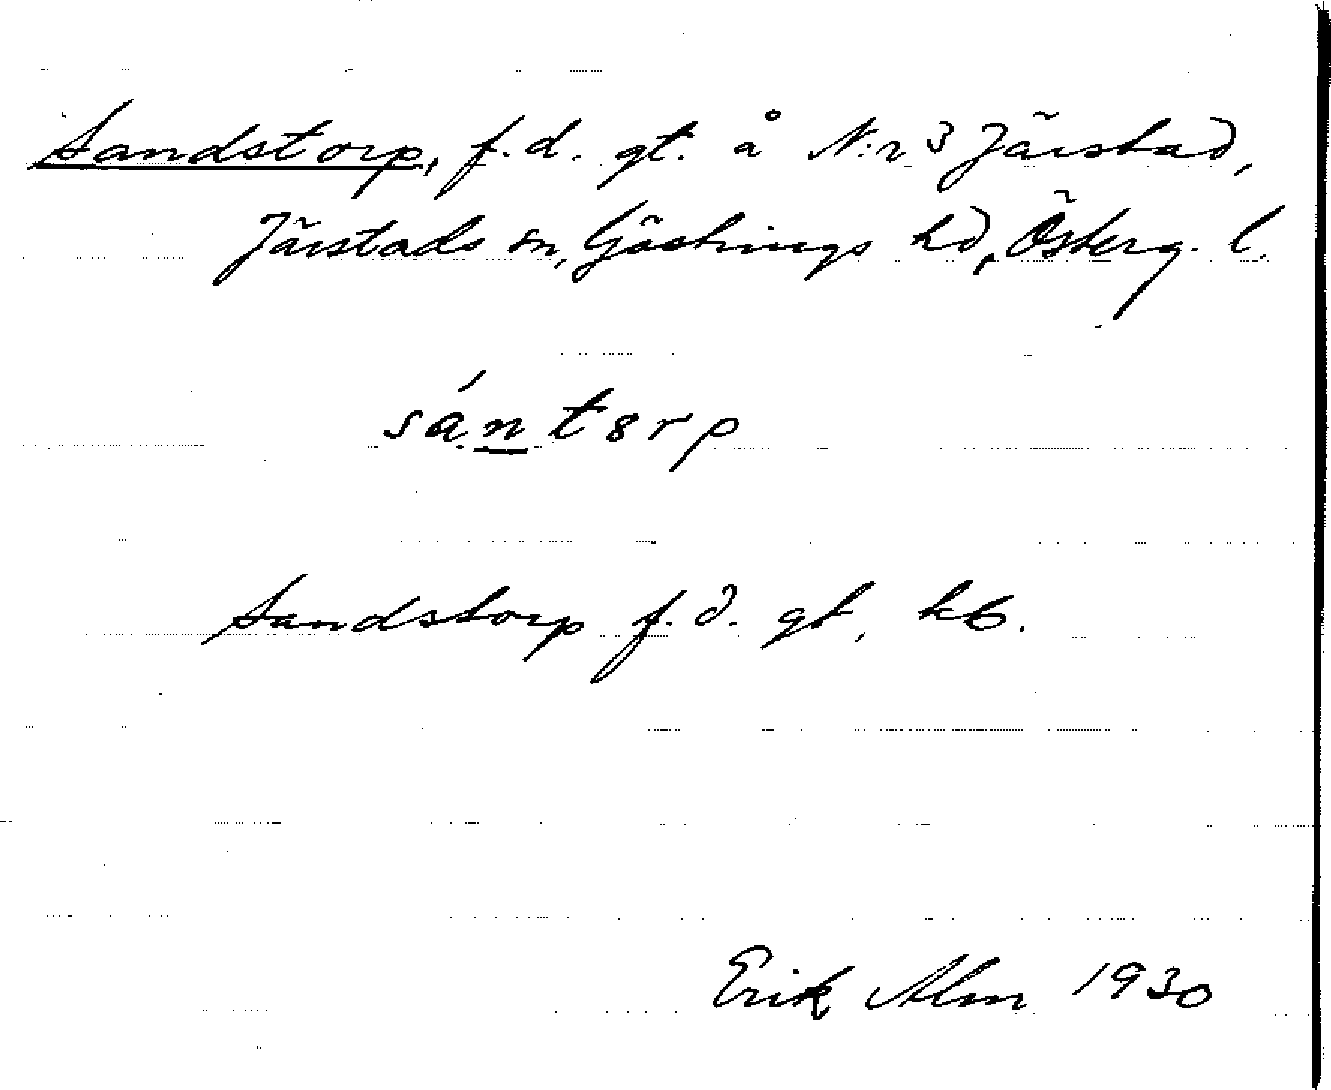 Sandstorp, f.d. gt. å N:r 3 Järstad,
Järstads sn, Göstrings hd, Österg. l.
sántorp
Sandstorp f.d. gt, kb.
Erik Alm 1930